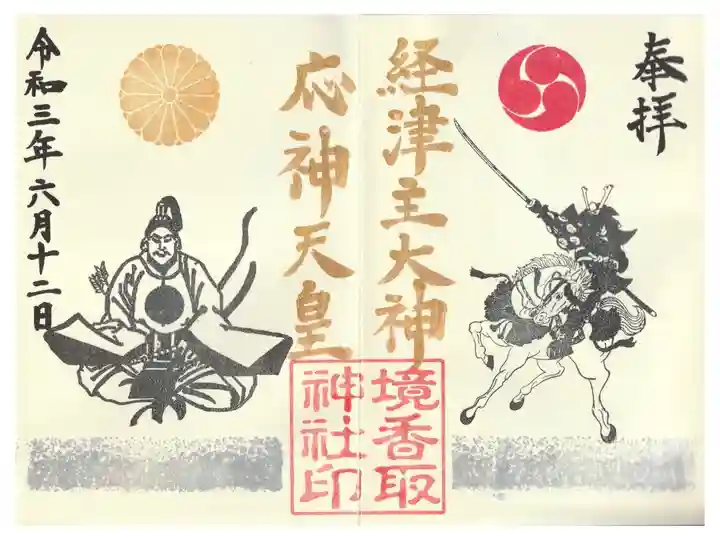 奉拝
経津主大神
応神天皇
令和三年六月十二日
境香取
神社印